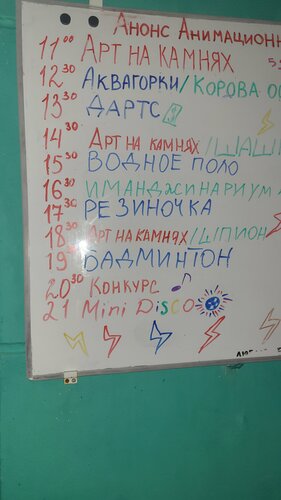 Анонс Анимационн
11⁰⁰ АРТ НА КАМНЯХ
12³⁰ АКВАГОРКИ/КОРОВА
13³⁰ ДАРТС
14³⁰ АРТ НА КАМНЯХ/ШАШ
15³⁰ ВОДНОЕ ПОЛО
16³⁰ ИМАНДЖИНАРИУМ
17³⁰ РЕЗИНОЧКА
18³⁰ АРТ НА КАМНЯХ/ШПИОН
19³⁰ БАДМИНТОН
20³⁰ КОНКУРС
21 Mini DISCO